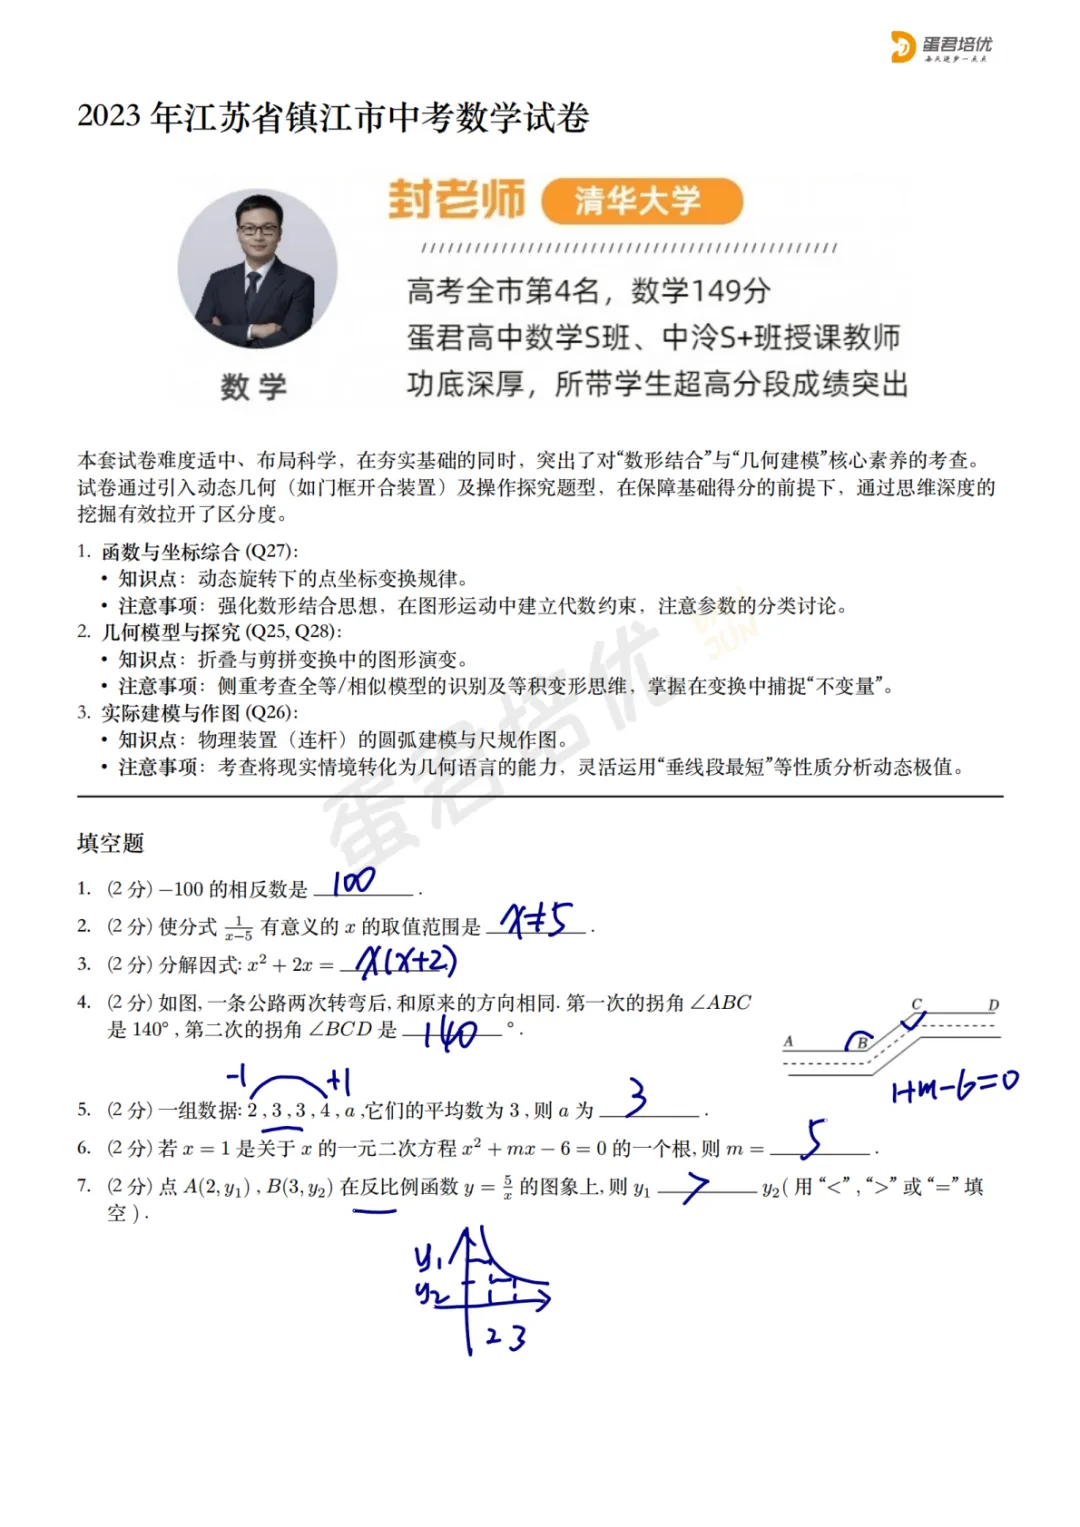 蛋君培优
每天进步一点点
2023 年江苏省镇江市中考数学试卷
封老师 清华大学
高考全市第4名，数学149分
蛋君高中数学S班、中泠S+班授课教师
功底深厚，所带学生超高分段成绩突出
数 学
本套试卷难度适中、布局科学，在夯实基础的同时，突出了对“数形结合”与“几何建模”核心素养的考查。
试卷通过引入动态几何（如门框开合装置）及操作探究题型，在保障基础得分的前提下，通过思维深度的
挖掘有效拉开了区分度。
1. 函数与坐标综合 (Q27)：
• 知识点：动态旋转下的点坐标变换规律。
• 注意事项：强化数形结合思想，在图形运动中建立代数约束，注意参数的分类讨论。
2. 几何模型与探究 (Q25, Q28)：
• 知识点：折叠与剪拼变换中的图形演变。
• 注意事项：侧重考查全等/相似模型的识别及等积变形思维，掌握在变换中捕捉“不变量”。
3. 实际建模与作图 (Q26)：
• 知识点：物理装置（连杆）的圆弧建模与尺规作图。
• 注意事项：考查将现实情境转化为几何语言的能力，灵活运用“垂线段最短”等性质分析动态极值。
蛋君培优
填空题
1. (2 分) −100 的相反数是 100 .
2. (2 分) 使分式 1/(x−5) 有意义的 x 的取值范围是 x≠5 .
3. (2 分) 分解因式: x² + 2x = x(x+2) .
4. (2 分) 如图, 一条公路两次转弯后, 和原来的方向相同. 第一次的拐角 ∠ABC
是 140° , 第二次的拐角 ∠BCD 是 140 ° .
A B C D
1+m-6=0
-1 +1
5. (2 分) 一组数据: 2 , 3 , 3 , 4 , a ,它们的平均数为 3 , 则 a 为 3 .
6. (2 分) 若 x = 1 是关于 x 的一元二次方程 x² + mx − 6 = 0 的一个根, 则 m = 5 .
7. (2 分) 点 A(2, y₁) , B(3, y₂) 在反比例函数 y = 5/x 的图象上, 则 y₁ > y₂( 用 “<” , “>” 或 “=” 填
空 ) .
y₁
y₂
2 3